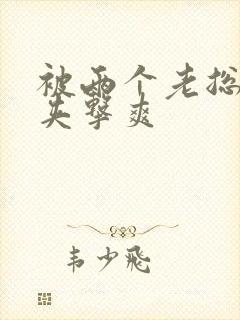 被两个老总
夹擊爽
韦少飛